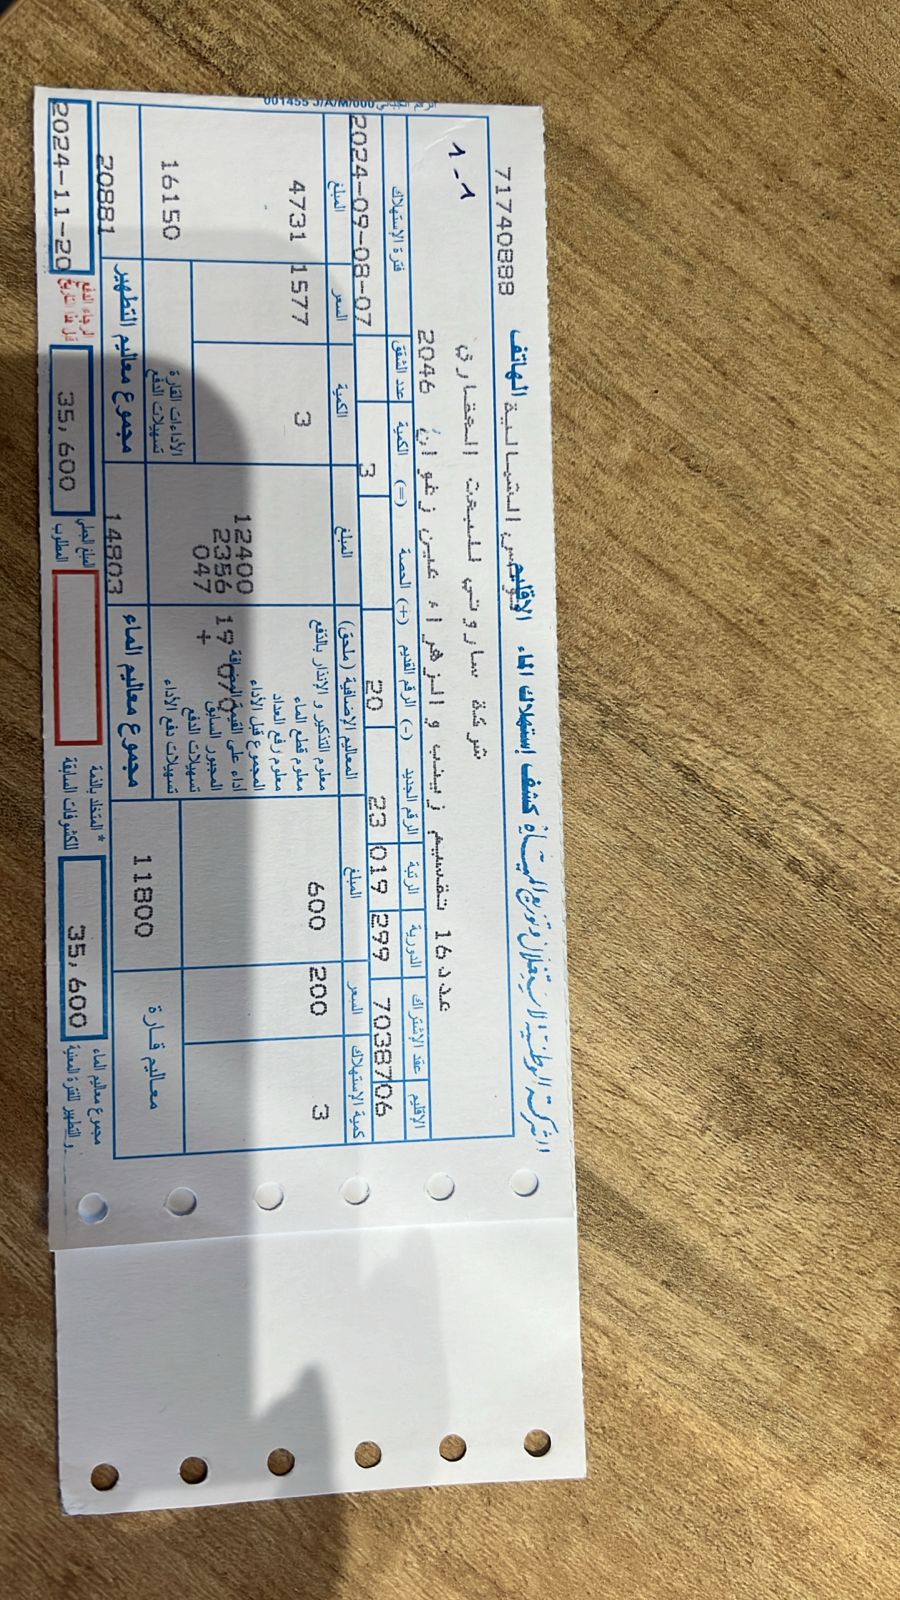 الشركة الوطنية لاستغلال وتوزيع المياه كشف إستهلاك الماء الإقليم تونس الشمالية الهاتف 71740888
شركة ساروتي للبعث العقاري
1-1
عدد 16 تقسيم زينب والزهراء عين زغوان 2046
الإقليم عقد الإشتراك الدورية الرتبة الرقم الجديد (-) الرقم القديم (+) الحصة (=) الكمية عدد الشقق فترة الإستهلاك
7038706 299 019 23 20 3 2024-09-08-07
كمية الإستهلاك السعر المبلغ المعاليم الإضافية (ملحق) المبلغ الكمية السعر المبلغ
3 200 600 معلوم التذكير و الإنذار بالدفع 3 1577 4731
معلوم قطع الماء
معلوم رفع العداد
المجموع قبل الأداء 12400
أداء على القيمة المضافة 19 070 2356
المجبور السابق + 047
تسهيلات الدفع
تسهيلات دفع الأداء
الأداءات القارة 16150
تسهيلات الدفع
معاليم قارة 11800
مجموع معاليم الماء 14803 مجموع معاليم التطهير 20881
مجموع معاليم الماء و التطهير للفترة المعنية 35,600 * المتخلد بالذمة للكشوفات السابقة المبلغ الجملي المطلوب 35,600 الرجاء الدفع قبل هذا التاريخ 2024-11-20
001455 J/A/M/000